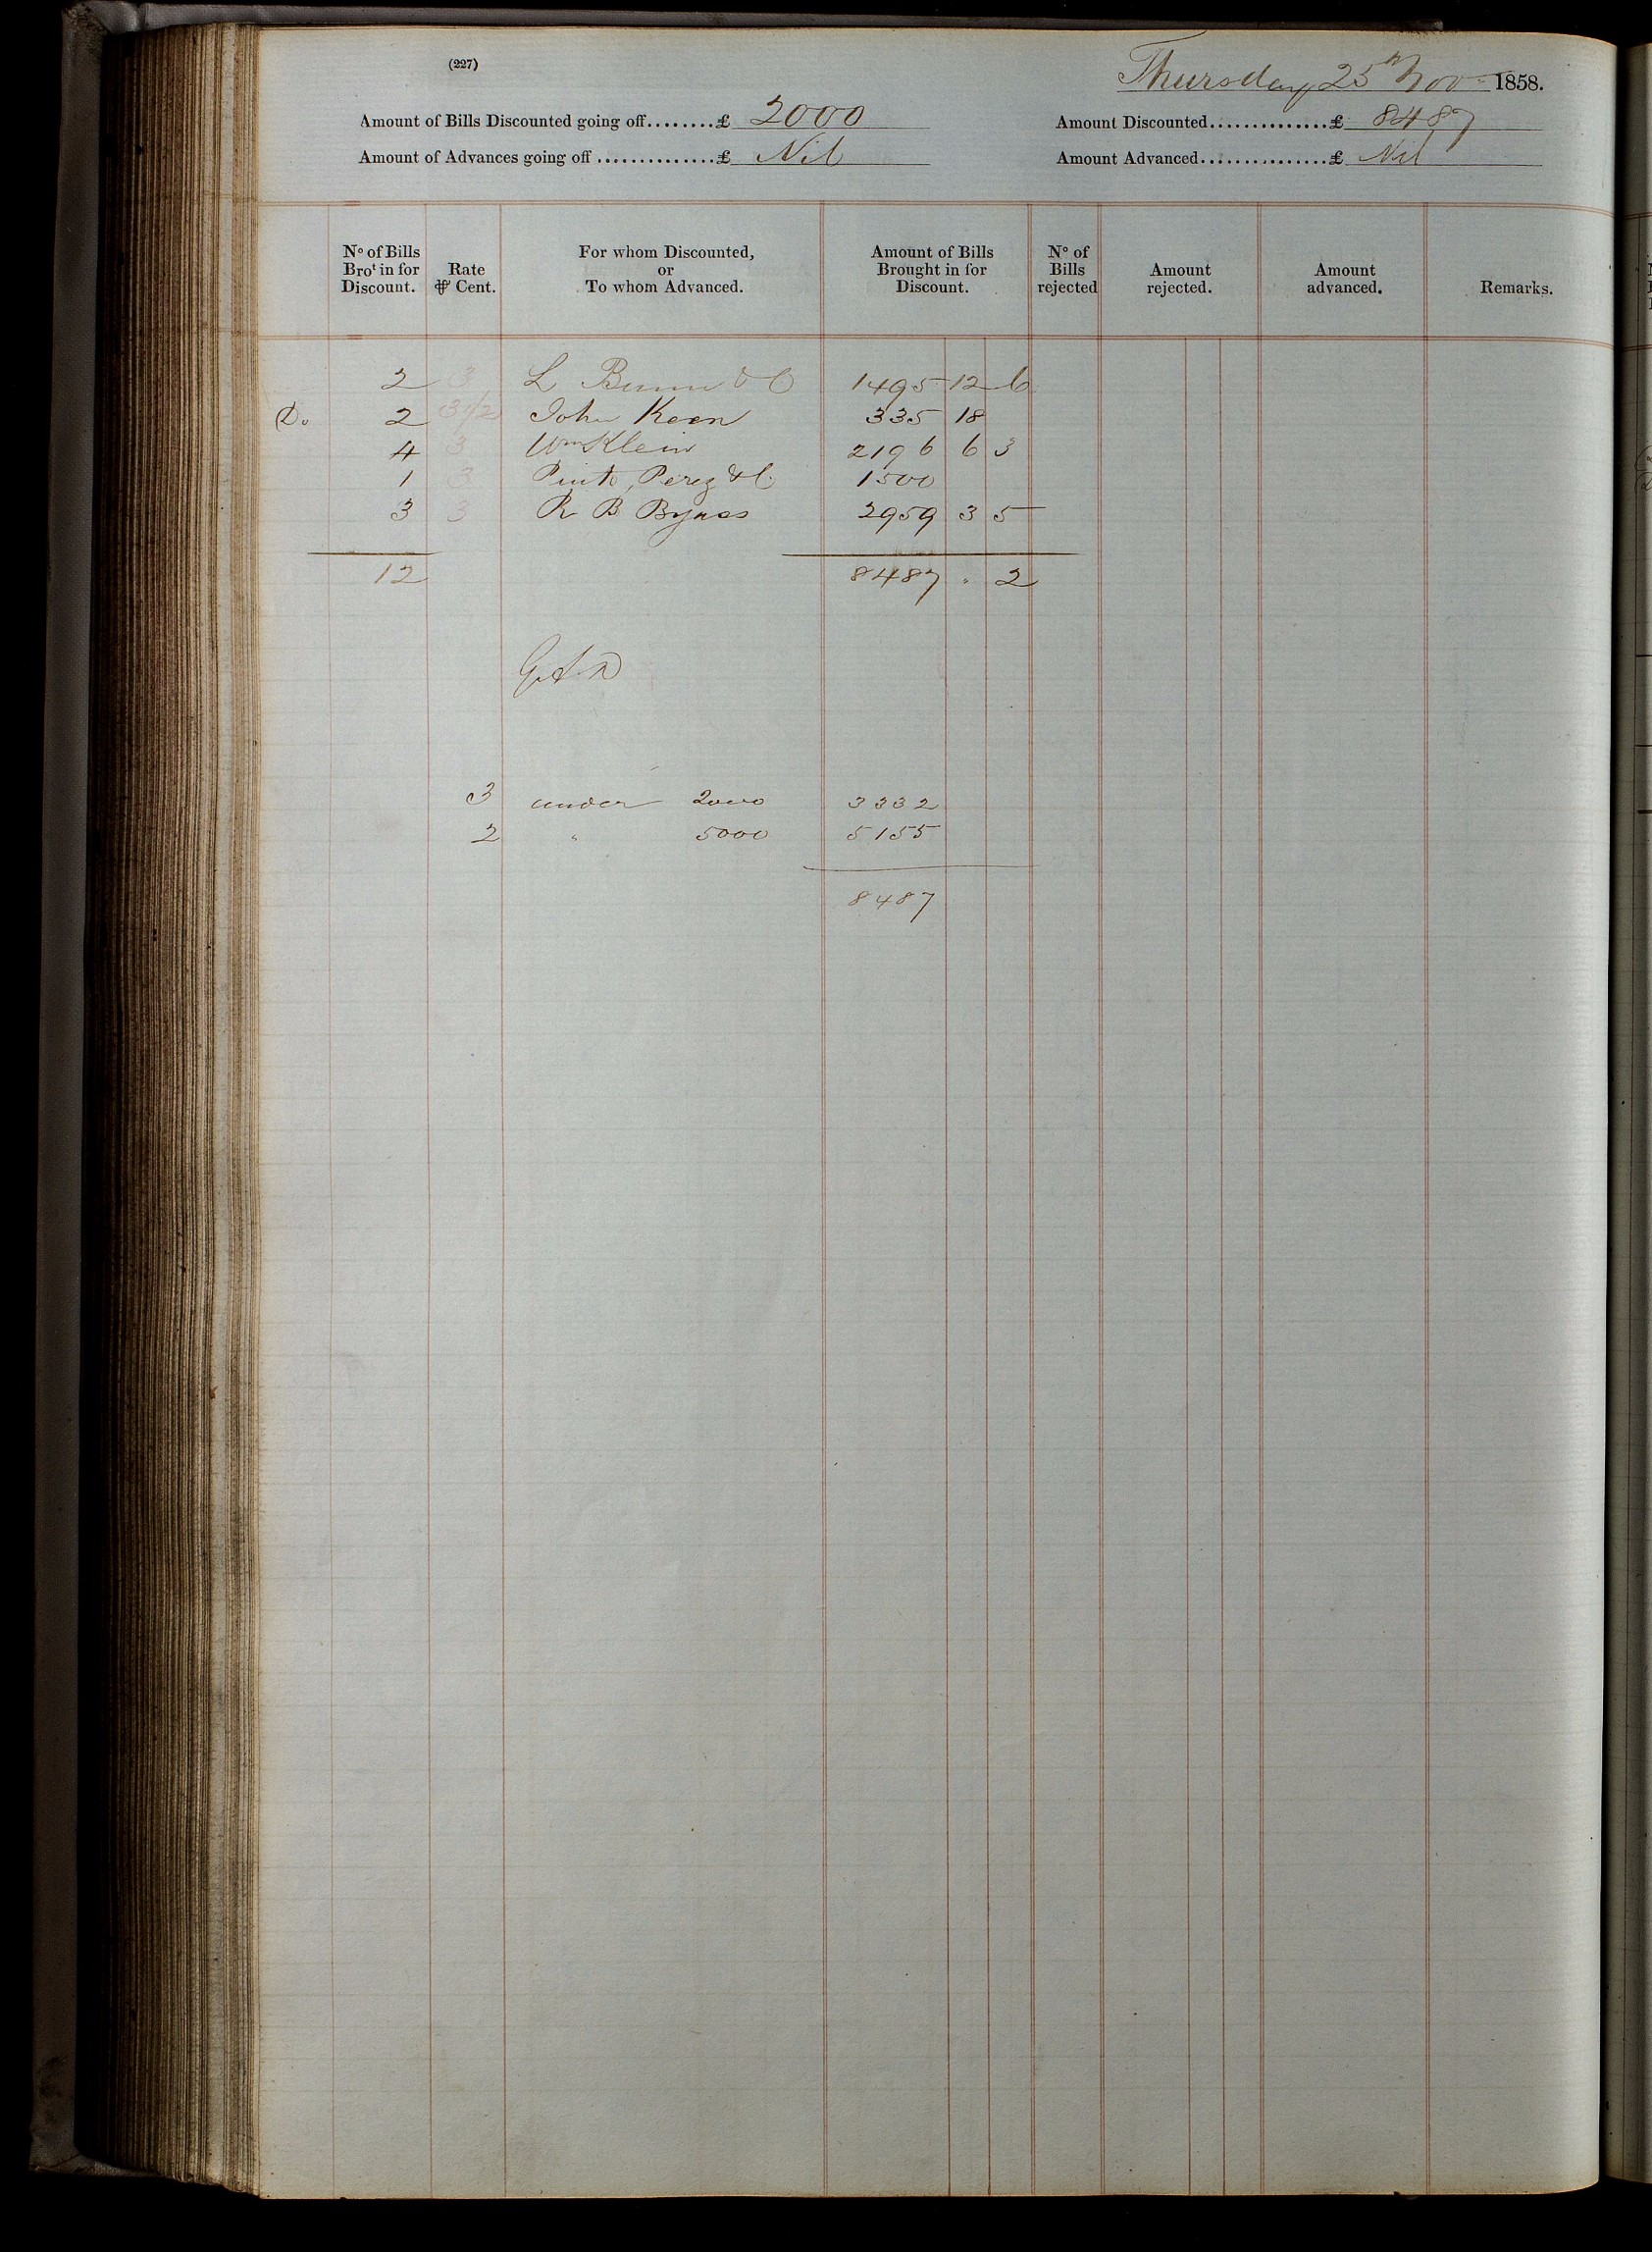 (227)
Thursday 25th Nov 1858.
Amount of Bills Discounted going off........£ 2000
Amount Discounted..............£ 8487
Amount of Advances going off ..............£ Nil
Amount Advanced...............£ Nil
No of Bills Brot in for Discount.
Rate ⅌ Cent.
For whom Discounted, or To whom Advanced.
Amount of Bills Brought in for Discount.
No of Bills rejected
Amount rejected.
Amount advanced.
Remarks.
2 3 L & C 1495 12 6
D. 2 3 1/2 John Keen 335 18
4 3 Wm Klein 2196 6 3
1 3 Pinto, Perez & C. 1500
3 3 R B Byass 2959 3 5
12 8487 . 2
3 under 2000 3332
2 " 5000 5155
8487